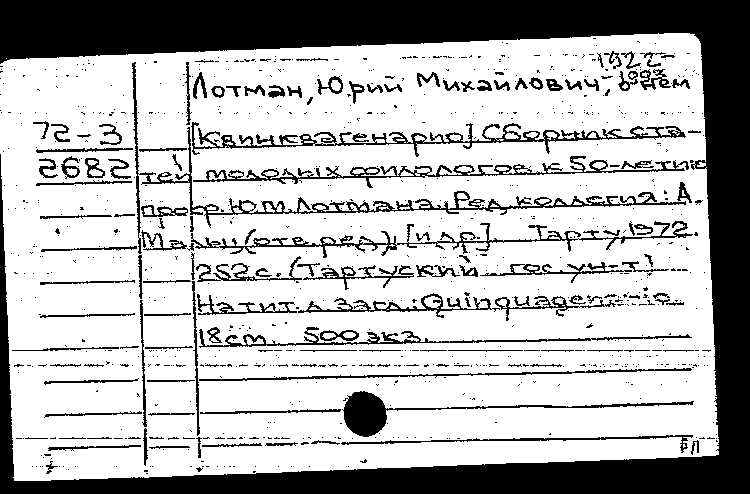 1922-
Лотман, Юрий Михайлович, о нем
1993
72-3
[Квинквагенарио]. Сборник ста-
2682
тей молодых филологов к 50-летию
проф. Ю.М. Лотмана. [Ред. коллегия: А.
Мальц (отв. ред.), [и др]. Тарту, 1972.
262 с. (Тартуский гос. ун-т)
На тит. л. загл.: Quinquagenario
18 cm. 500 экз.